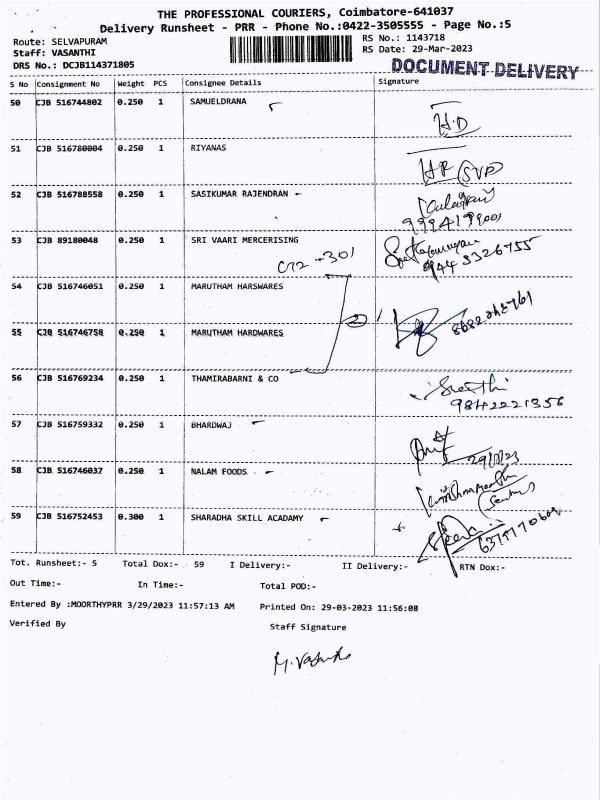 THE PROFESSIONAL COURIERS, Coimbatore-641037
Delivery Runsheet - PRR - Phone No.:0422-3505555 - Page No.:5
Route: SELVAPURAM
RS No.: 1143718
Staff: VASANTHI
RS Date: 29-Mar-2023
DRS No.: DCJB114371805
DOCUMENT DELIVERY
S No Consignment No Weight PCS Consignee Details Signature
50 CJB 516744802 0.250 1 SAMUELDRANA
H.D
51 CJB 516780004 0.250 1 RIYANAS
HR (SVP)
52 CJB 516788558 0.250 1 SASIKUMAR RAJENDRAN
9994199001
53 CJB 89180048 0.250 1 SRI VAARI MERCERISING
9443326755
54 CJB 516746051 0.250 1 MARUTHAM HARSWARES
2
55 CJB 516746758 0.250 1 MARUTHAM HARDWARES
56 CJB 516769234 0.250 1 THAMIRABARNI & CO
9842221356
57 CJB 516759332 0.250 1 BHARDWAJ
58 CJB 516746037 0.250 1 NALAM FOODS
59 CJB 516752453 0.300 1 SHARADHA SKILL ACADAMY
Tot. Runsheet:- 5 Total Dox:- 59 I Delivery:- II Delivery:- RTN Dox:-
Out Time:- In Time:- Total POD:-
Entered By :MOORTHYPRR 3/29/2023 11:57:13 AM Printed On: 29-03-2023 11:56:08
Verified By Staff Signature
M. Vasanthi